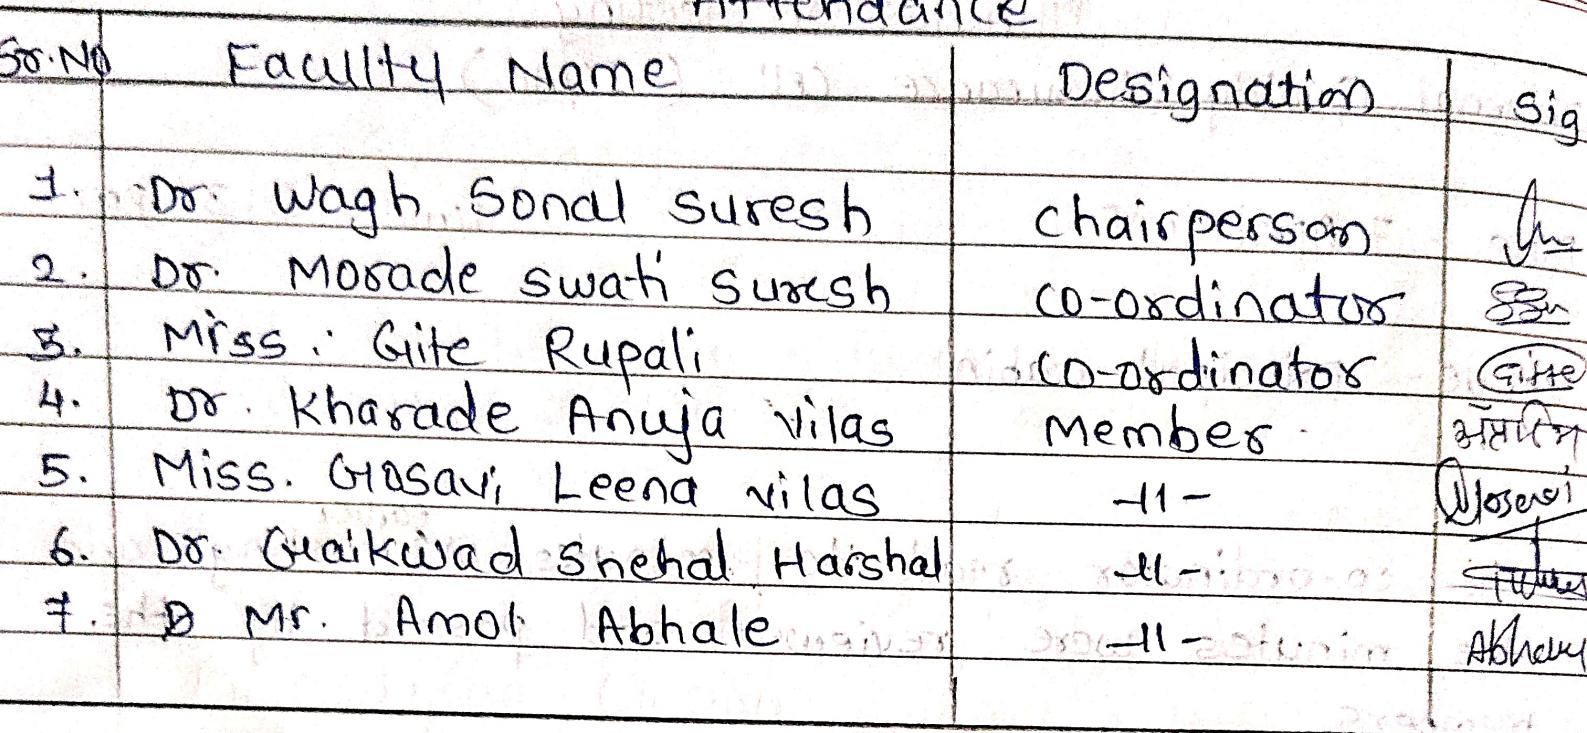 Attendance
Sr.No Faculty Name Designation Sig
1. Dr. Wagh Sonal Suresh Chairperson
2. Dr. Morade Swati Suresh Co-ordinator
3. Miss. Gite Rupali Co-ordinator Gitte
4. Dr. Kharade Anuja Vilas Member
5. Miss. Gosavi Leena Vilas -11-
6. Dr. Gaikwad Snehal Harshal -11-
7. Mr. Amol Abhale -11-